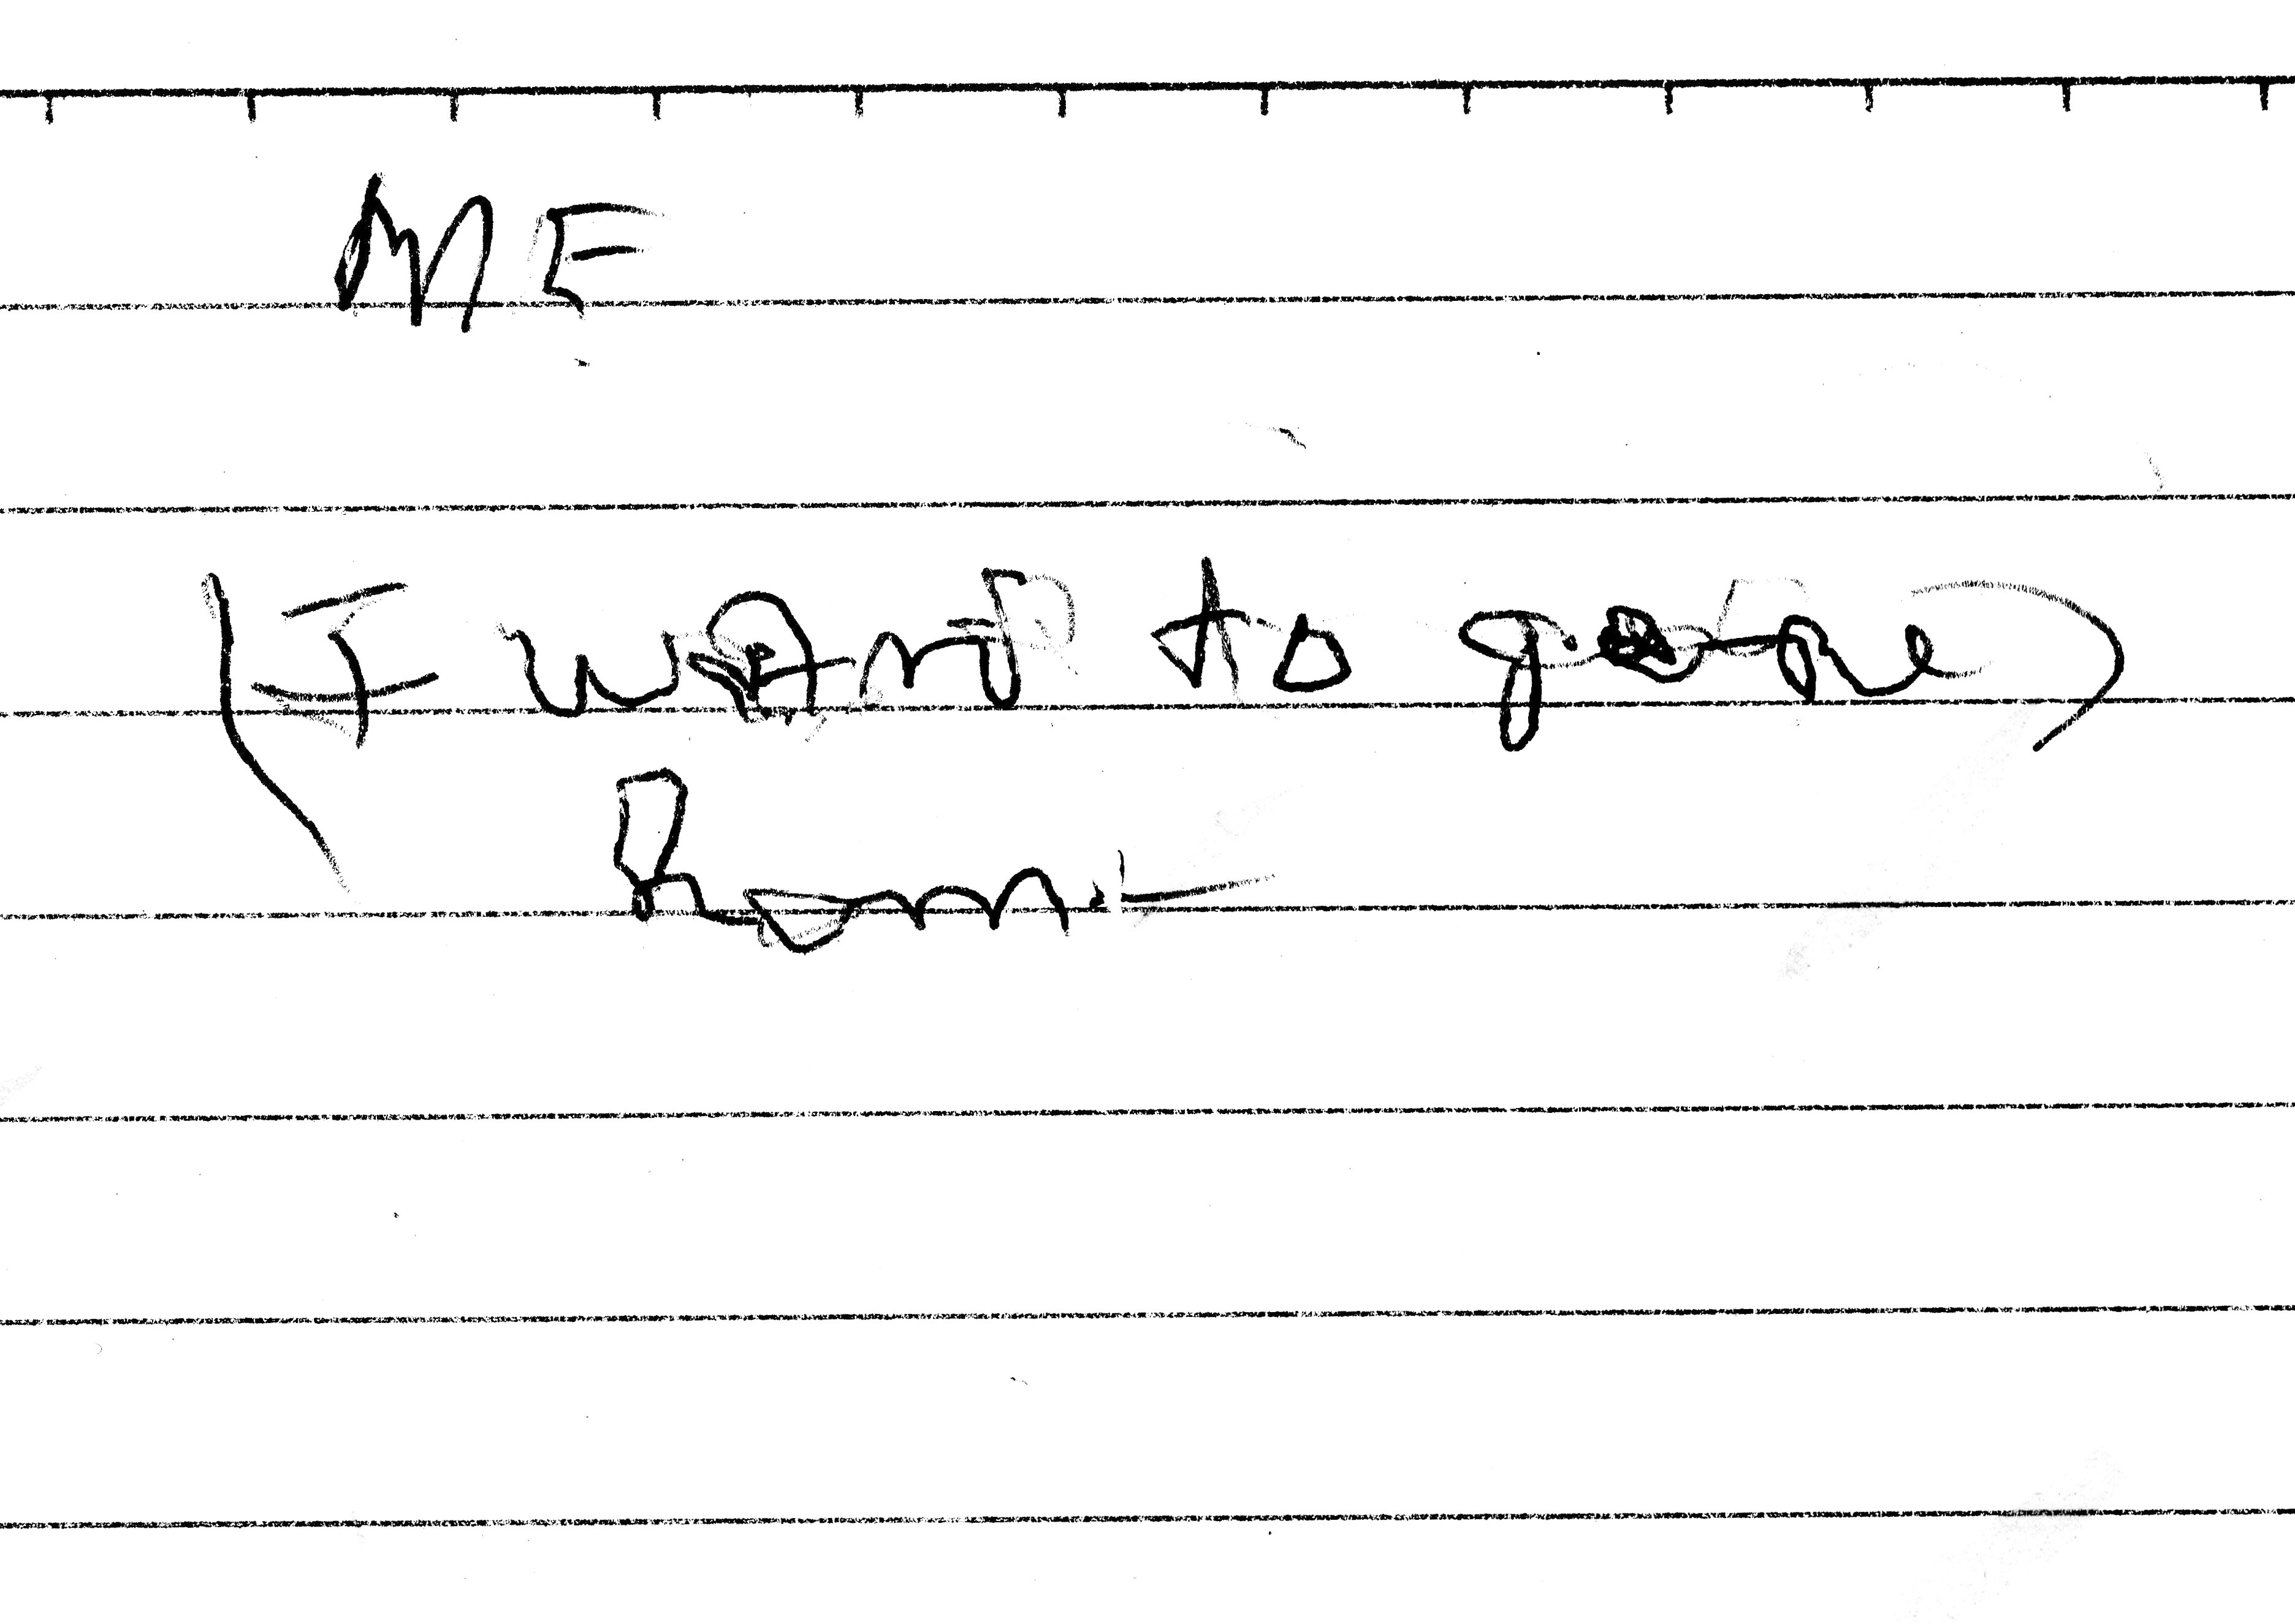 ME
(I want to go
home